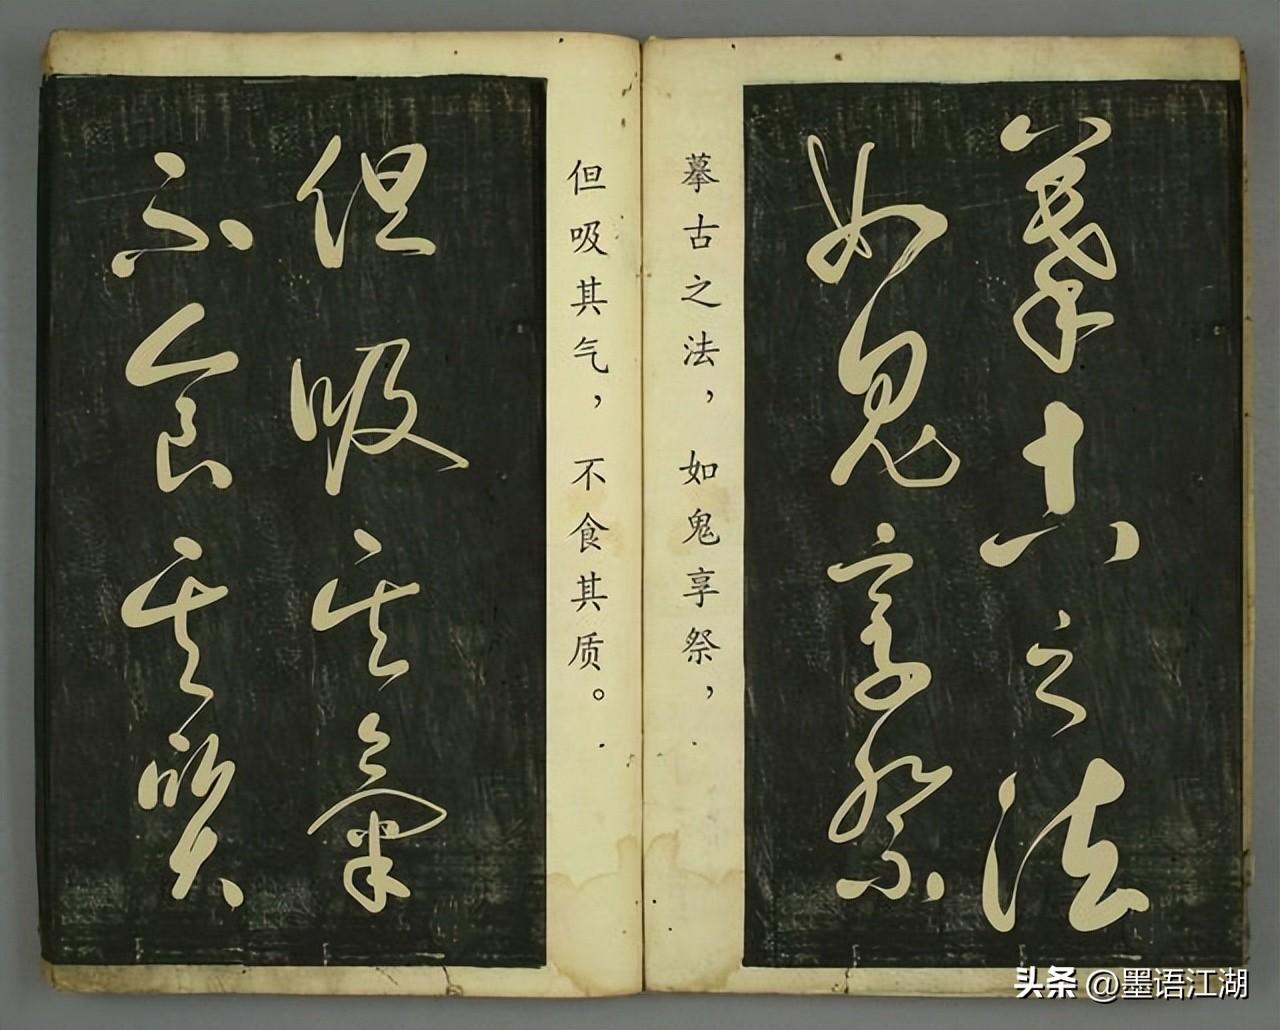 摹古之法
如鬼享祭
摹古之法，如鬼享祭，
但吸其气，不食其质。
但吸其氣
不食其質
头条 @墨语江湖